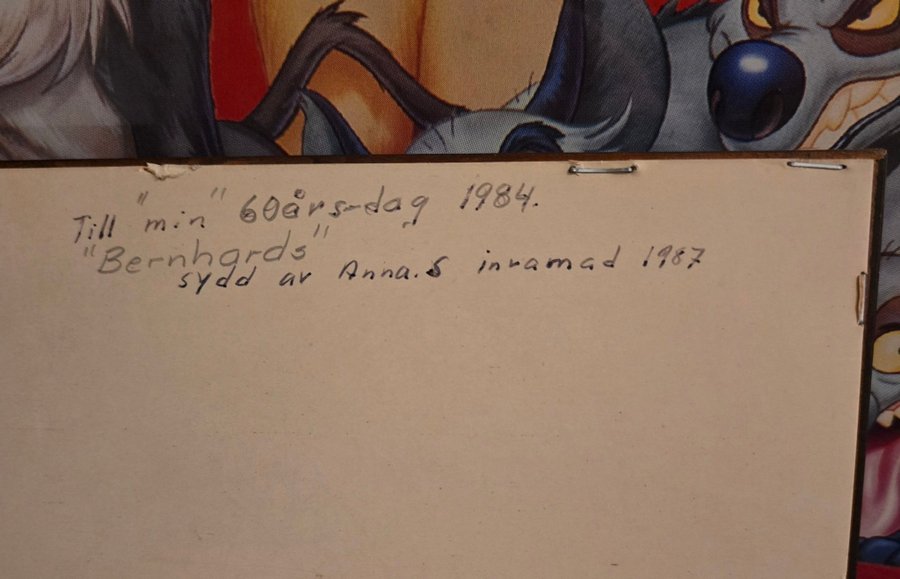 Till "min" 60års-dag 1984.
"Bernhards"
sydd av Anna.S inramad 1987